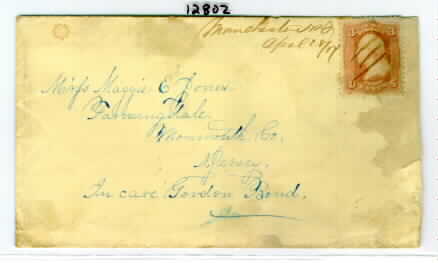 12802
Manchester N.J.
April 28/69
3 3
Miss Maggie E Jones
Farmingdale
Monmouth Co.
N Jersey.
In care Gordon Bond.